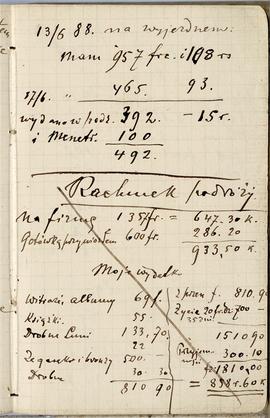 13/6 88. na wyjezdnem:
Mam 957 frc. i 108 rs
17/6. " 465. 93.
wydano w podr. 392 - 15 r.
i Menetr. 100
492.
Rachunek podróży.
Na firmę 1357 fr. = 647.30 K.
Gotówką przywiozłem 600 fr. 286.20
933,50 K.
Moje wydatk
albumy 69 f.
Książki 55.-
Drobne 133,70
22 -
Zeganek i bronzy 500 -
Drobne 30.30
810 90
2 przen f. 810.90
Życie 700-
1510 90
300.10
1810.00
= 898.60 K